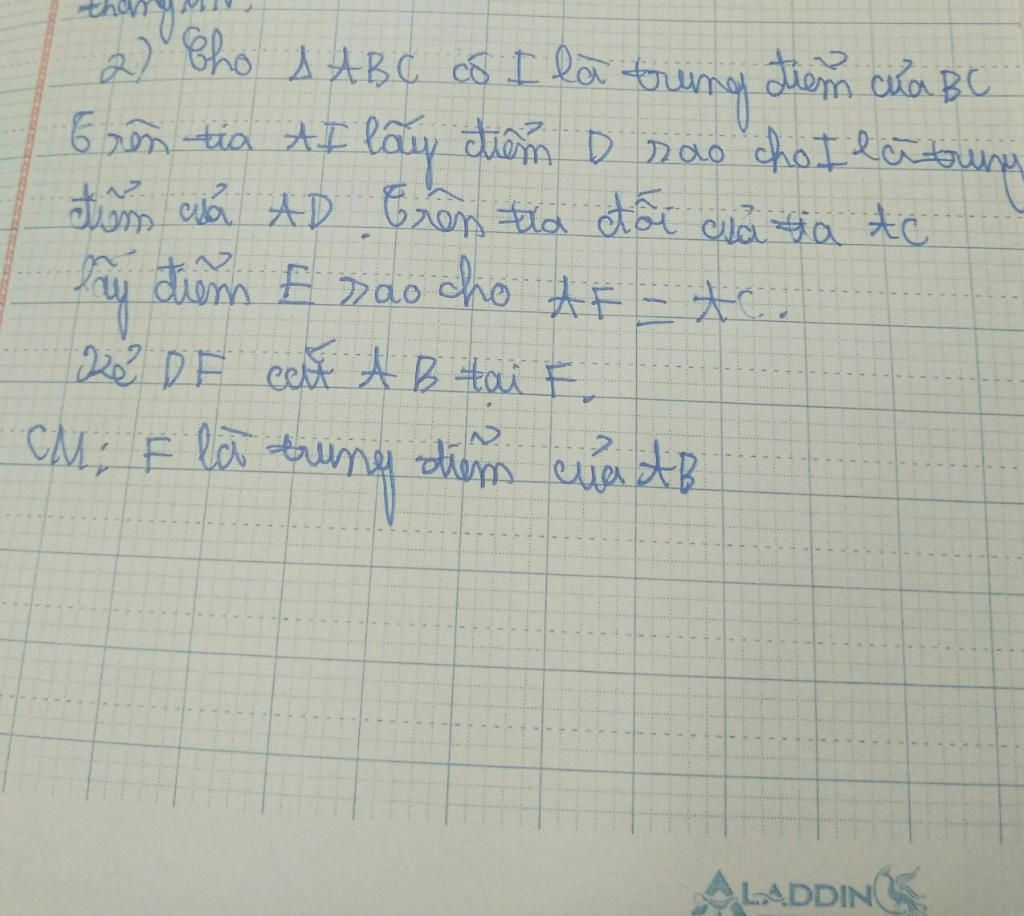 thẳng MN.
2) Cho Δ ABC có I là trung điểm của BC
Trên tia AI lấy điểm D sao cho I là trung
điểm của AD. Trên tia đối của tia AC
lấy điểm E sao cho AF = AC.
Kẻ DF cắt AB tại F.
CM: F là trung điểm của AB
ALADDIN